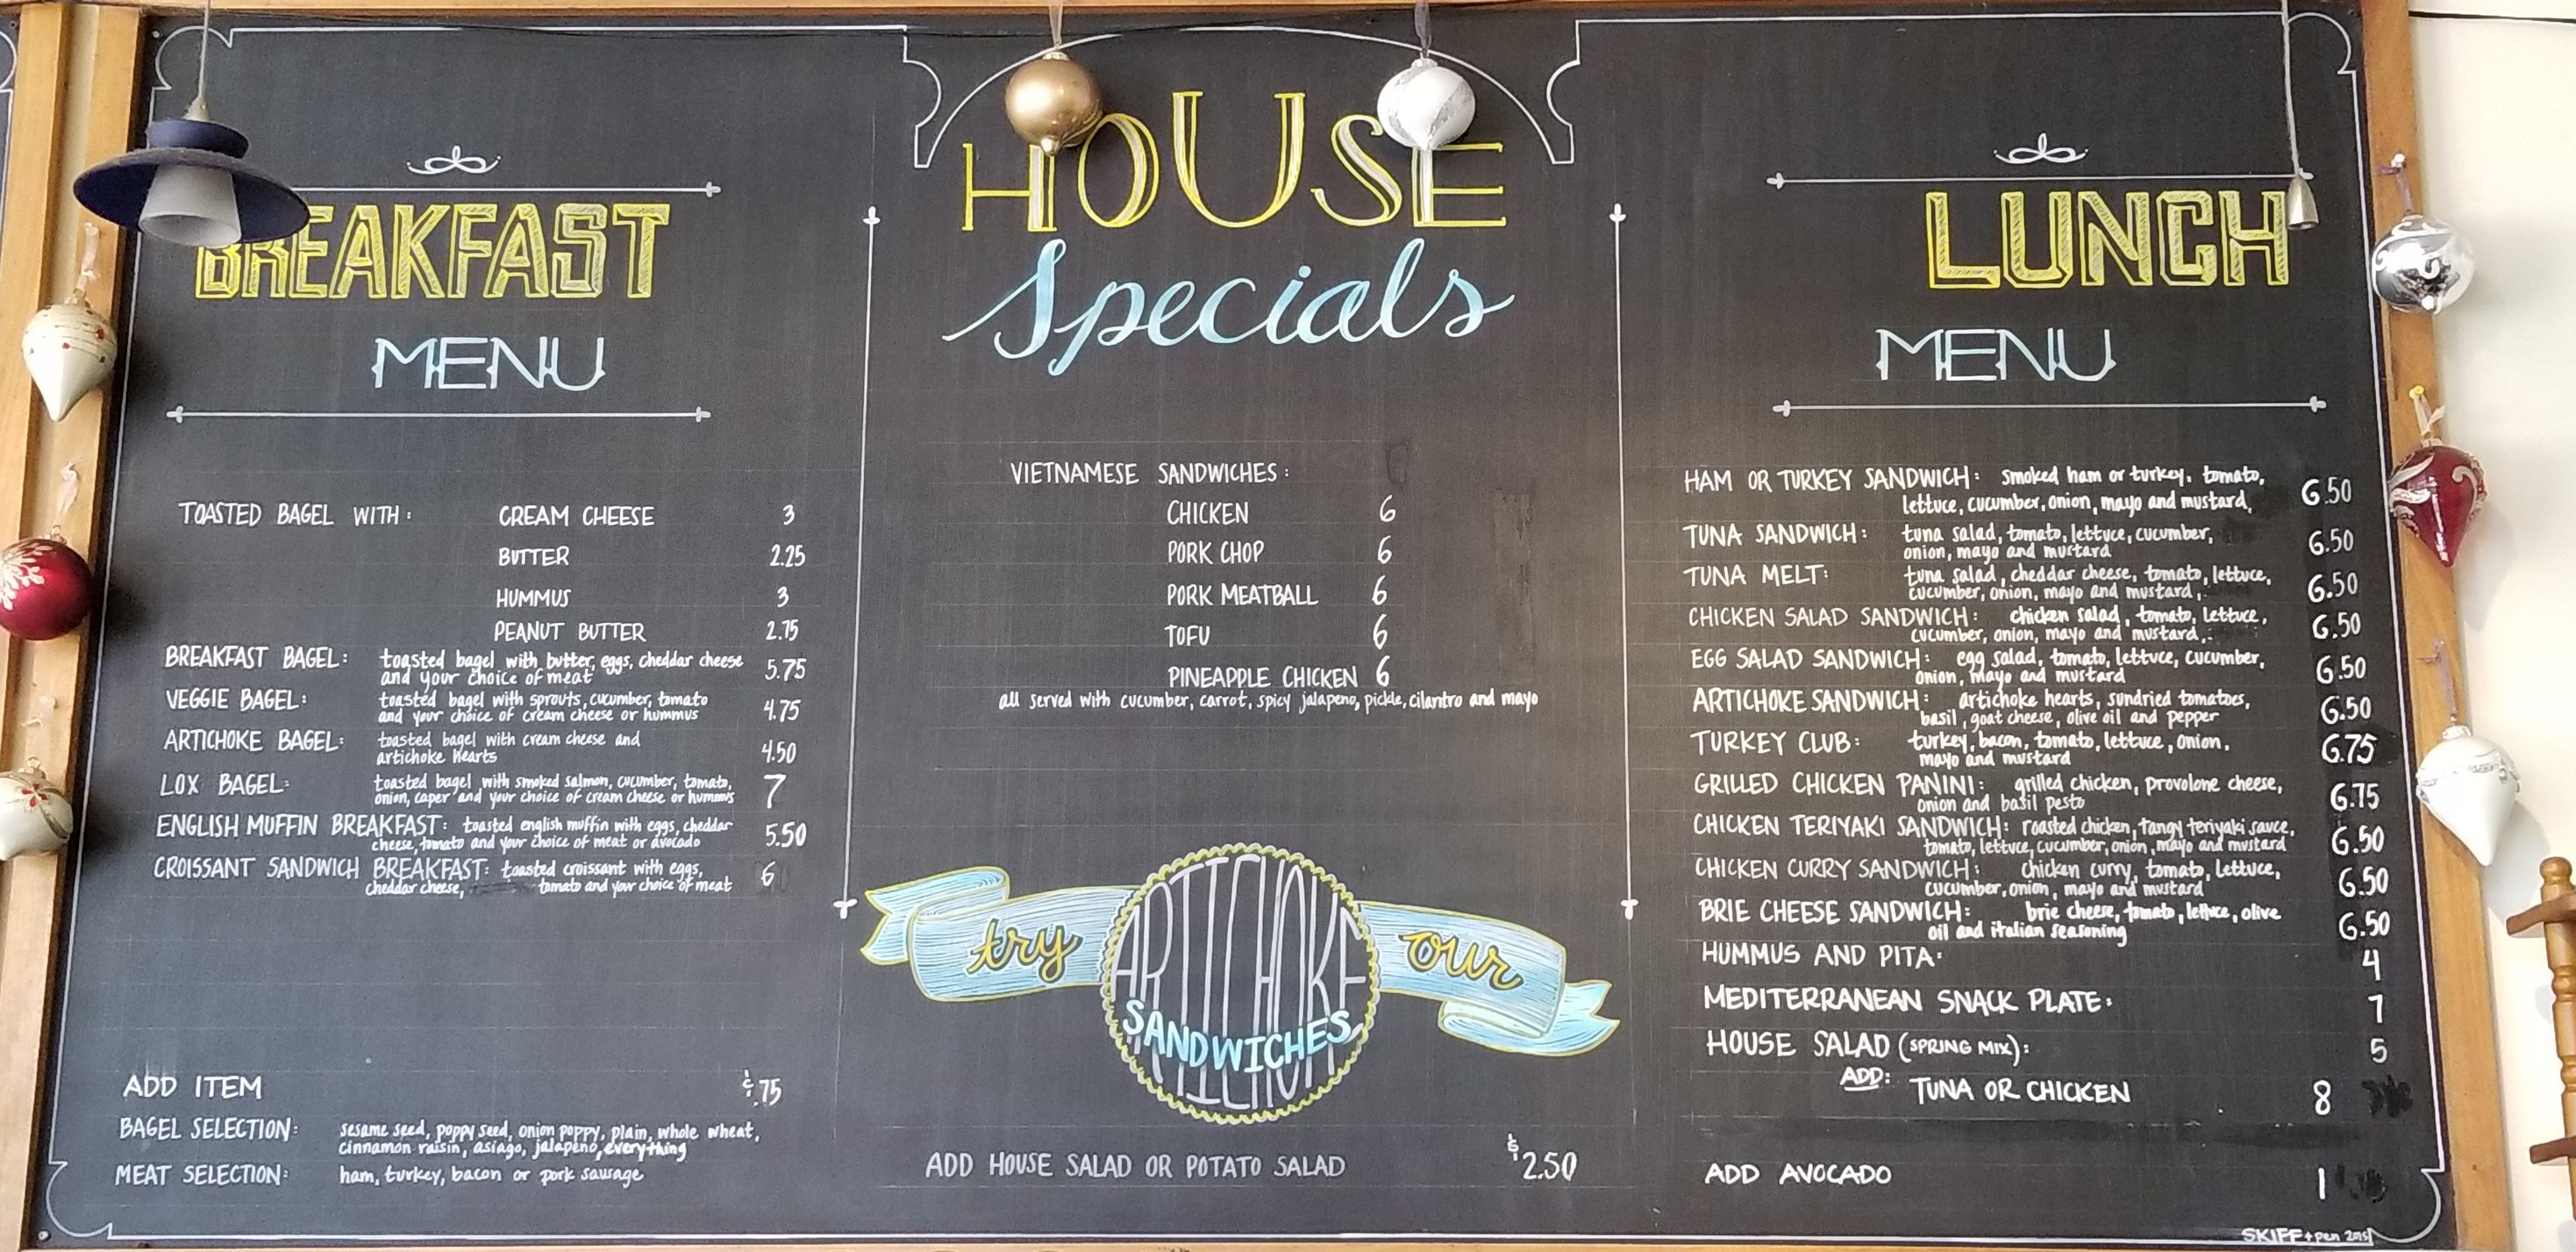 BREAKFAST
MENU
TOASTED BAGEL WITH: CREAM CHEESE 3
BUTTER 2.25
HUMMUS 3
PEANUT BUTTER 2.75
BREAKFAST BAGEL: toasted bagel with butter, eggs, cheddar cheese 5.75
and your choice of meat
VEGGIE BAGEL: toasted bagel with sprouts, cucumber, tomato 4.75
and your choice of cream cheese or hummus
ARTICHOKE BAGEL: toasted bagel with cream cheese and 4.50
artichoke hearts
LOX BAGEL: toasted bagel with smoked salmon, cucumber, tomato, 7
onion, caper and your choice of cream cheese or hummus
ENGLISH MUFFIN BREAKFAST: toasted english muffin with eggs, cheddar 5.50
cheese, tomato and your choice of meat or avocado
CROISSANT SANDWICH BREAKFAST: toasted croissant with eggs, 6
cheddar cheese, tomato and your choice of meat
ADD ITEM $.75
BAGEL SELECTION: sesame seed, poppy seed, onion poppy, plain, whole wheat,
cinnamon raisin, asiago, jalapeno, everything
MEAT SELECTION: ham, turkey, bacon or pork sausage
HOUSE
Specials
VIETNAMESE SANDWICHES:
CHICKEN 6
PORK CHOP 6
PORK MEATBALL 6
TOFU 6
PINEAPPLE CHICKEN 6
all served with cucumber, carrot, spicy jalapeno, pickle, cilantro and mayo
try our
ARTICHOKE
SANDWICHES
ADD HOUSE SALAD OR POTATO SALAD $2.50
LUNCH
MENU
HAM OR TURKEY SANDWICH: smoked ham or turkey, tomato, 6.50
lettuce, cucumber, onion, mayo and mustard,
TUNA SANDWICH: tuna salad, tomato, lettuce, cucumber, 6.50
onion, mayo and mustard
TUNA MELT: tuna salad, cheddar cheese, tomato, lettuce, 6.50
cucumber, onion, mayo and mustard,
CHICKEN SALAD SANDWICH: chicken salad, tomato, lettuce, 6.50
cucumber, onion, mayo and mustard,
EGG SALAD SANDWICH: egg salad, tomato, lettuce, cucumber, 6.50
onion, mayo and mustard
ARTICHOKE SANDWICH: artichoke hearts, sundried tomatoes, 6.50
basil, goat cheese, olive oil and pepper
TURKEY CLUB: turkey, bacon, tomato, lettuce, onion, 6.75
mayo and mustard
GRILLED CHICKEN PANINI: grilled chicken, provolone cheese, 6.75
onion and basil pesto
CHICKEN TERIYAKI SANDWICH: roasted chicken, tangy teriyaki sauce, 6.50
tomato, lettuce, cucumber, onion, mayo and mustard
CHICKEN CURRY SANDWICH: chicken curry, tomato, lettuce, 6.50
cucumber, onion, mayo and mustard
BRIE CHEESE SANDWICH: brie cheese, tomato, lettuce, olive 6.50
oil and italian seasoning
HUMMUS AND PITA: 4
MEDITERRANEAN SNACK PLATE: 7
HOUSE SALAD (SPRING MIX): 5
ADD: TUNA OR CHICKEN 8
ADD AVOCADO 1
SKIFF + pen 2015